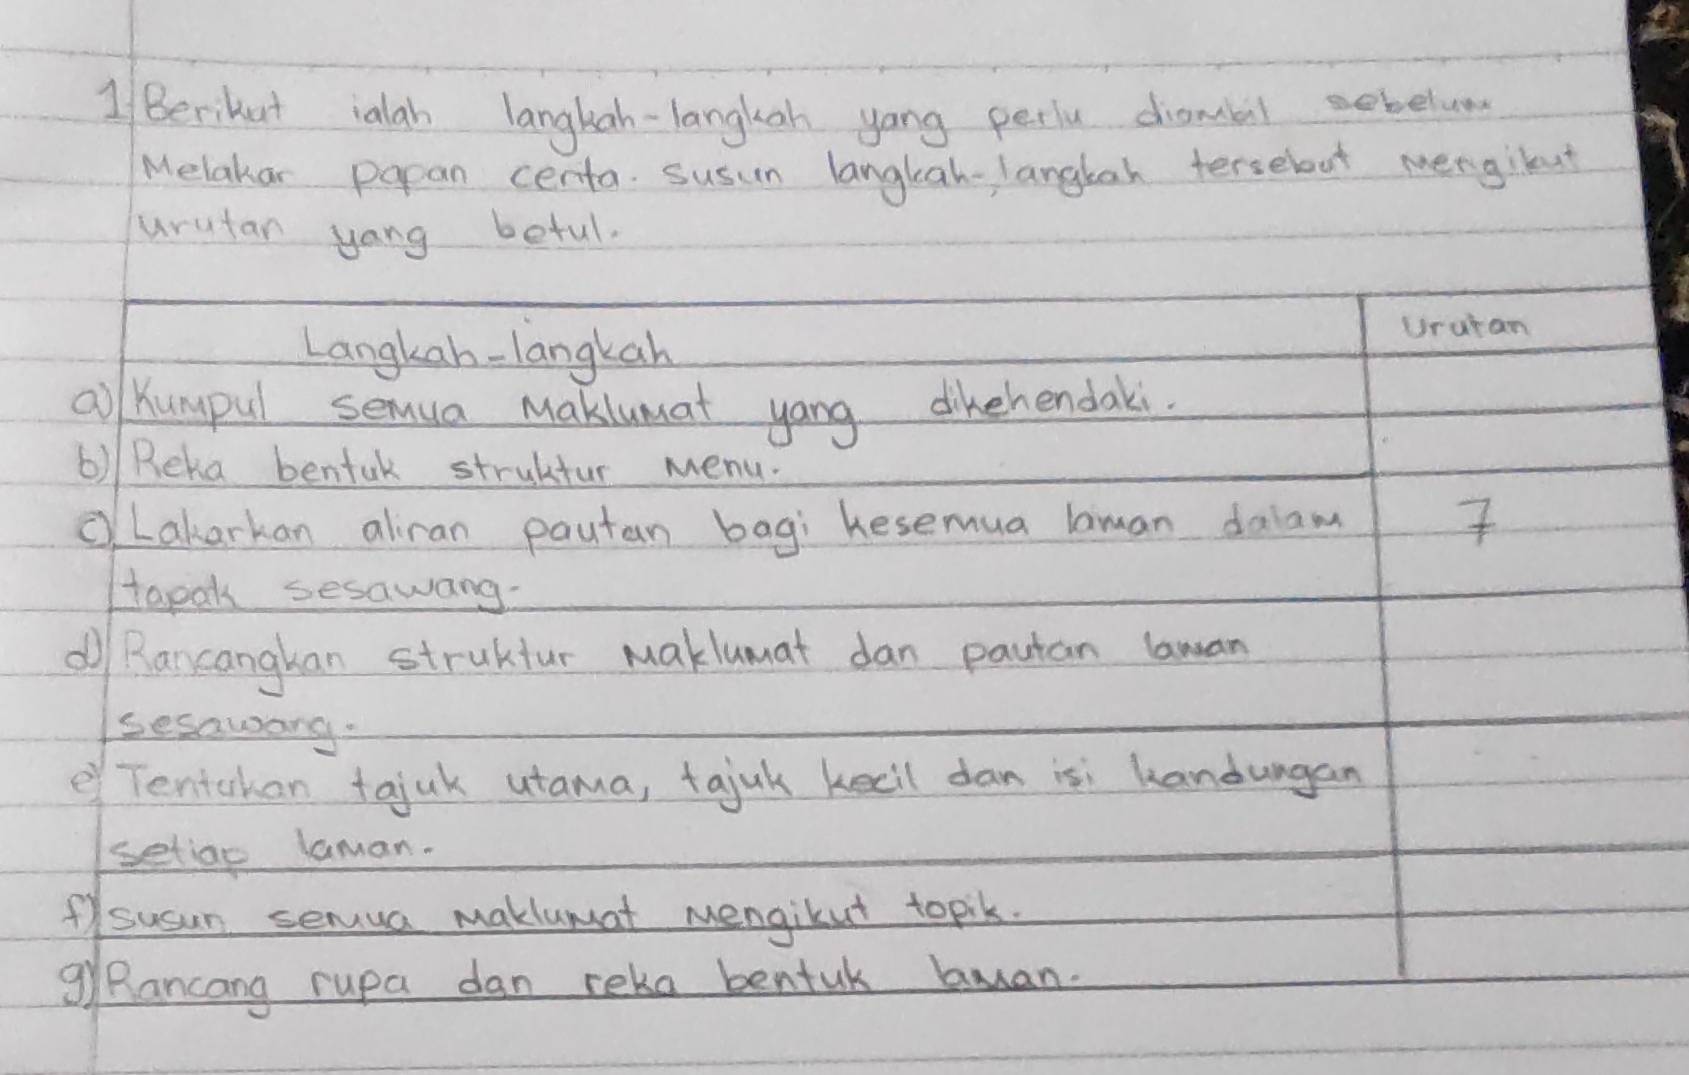 1 Berikut ialah langkah-langkah yang perlu diambil sebelum
Melakar papan cerita. susun langkah-langkah tersebut mengikut
urutan yang betul.
Langkah-langkah Urutan
a) Kumpul semua Maklumat yang dikehendaki.
b) Reka bentuk struktur menu.
c) Lakarkan aliran pautan bagi kesemua laman dalam 7
tapak sesawang.
d) Rancangkan struktur maklumat dan pautan laman
sesawang.
e) Tentukan tajuk utama, tajuk kecil dan isi kandungan
setiap laman.
f) susun semua maklumat mengikut topik.
g) Rancang rupa dan reka bentuk laman.